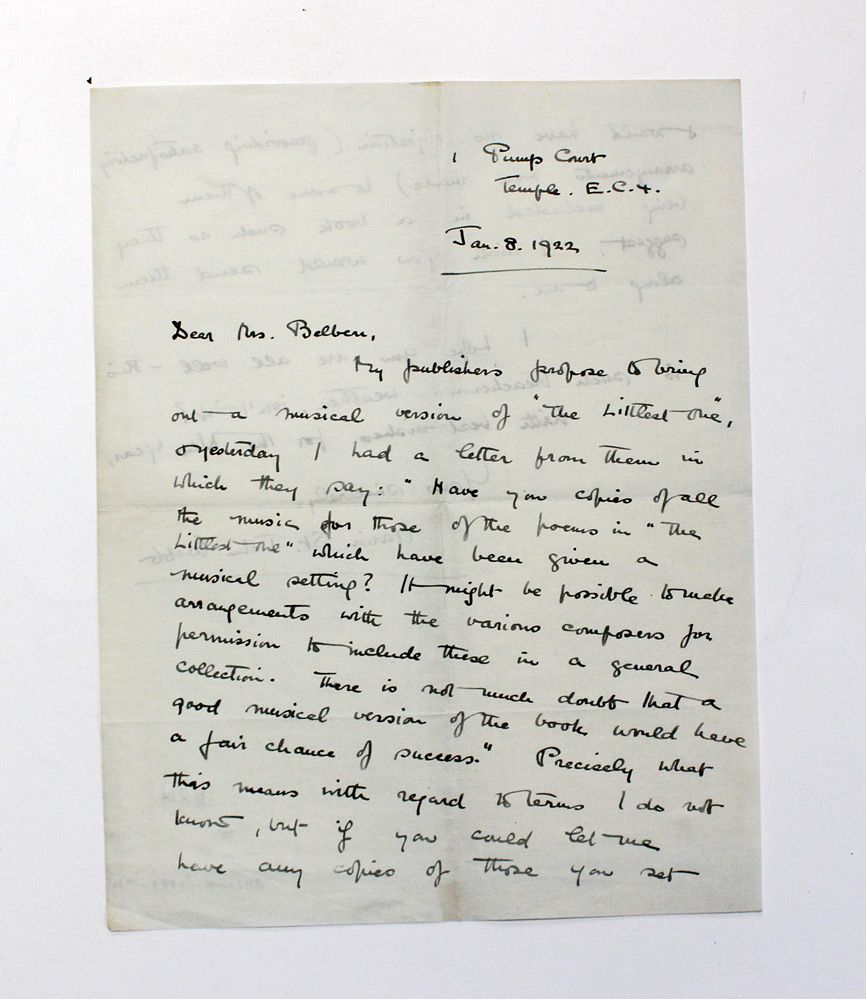 1 Pump Court
Temple. E.C.4.
Jan. 8. 1922
Dear Mrs. Belben,
My publishers propose to bring
out a musical version of "the Littlest one",
& yesterday I had a letter from them in
which they say: "Have you copies of all
the music for those of the poems in "the
Littlest one" which have been given a
musical setting? It might be possible to make
arrangements with the various composers for
permission to include these in a general
collection. There is not much doubt that a
good musical version of the book would have
a fair chance of success." Precisely what
this means with regard to terms I do not
know, but if you could let me
have any copies of those you set